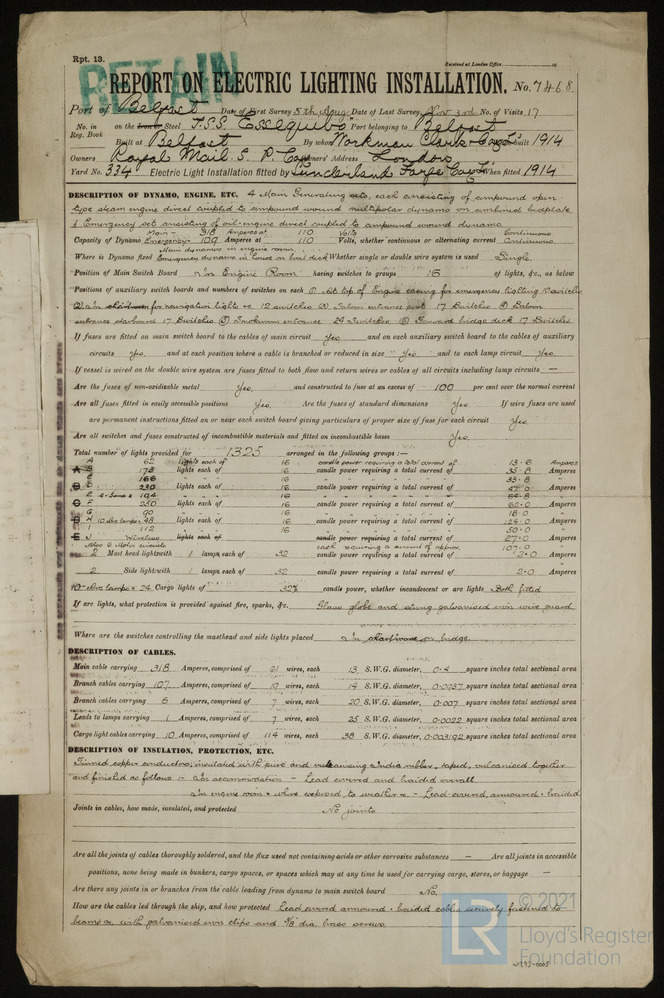 Rpt. 13.
RETAIN
Received at London Office
REPORT ON ELECTRIC LIGHTING INSTALLATION. No. 7468.
Port of Belfast Date of First Survey 5th Aug. Date of Last Survey Nov 3rd No. of Visits 17
No. in Reg. Book on the Iron or Steel T.S.S. Essequibo Port belonging to Belfast
Built at Belfast By whom Workman Clark & Co Ld When built 1914
Owners Royal Mail S. P. Co Owners' Address London
Yard No. 334 Electric Light Installation fitted by Sunderland Forge Co Ld When fitted 1914
DESCRIPTION OF DYNAMO, ENGINE, ETC. 4 Main Generating sets, each consisting of compound open
type steam engine direct coupled to compound wound multipolar dynamo on combined bedplate
1 Emergency set consisting of oil-engine direct coupled to compound wound dynamo.
Main - 318 Amperes at 110 Volts Continuous
Capacity of Dynamo Emergency - 109 Amperes at 110 Volts, whether continuous or alternating current Continuous
Main dynamos in engine room.
Where is Dynamo fixed Emergency dynamo in house on boat deck Whether single or double wire system is used Single.
Position of Main Switch Board In Engine Room having switches to groups 16 of lights, &c., as below
Positions of auxiliary switch boards and numbers of switches on each (1) At top of Engine casing for emergency lighting switches
(2) In chartroom for navigation lights &c, 12 switches (3) Saloon entrance port 17 Switches (4) Saloon
entrance starboard 17 Switches (5) Smokeroom entrance 24 Switches (6) Forward bridge deck 17 Switches
If fuses are fitted on main switch board to the cables of main circuit Yes and on each auxiliary switch board to the cables of auxiliary
circuits Yes and at each position where a cable is branched or reduced in size Yes and to each lamp circuit Yes.
If vessel is wired on the double wire system are fuses fitted to both flow and return wires or cables of all circuits including lamp circuits —
Are the fuses of non-oxidizable metal Yes. and constructed to fuse at an excess of 100 per cent over the normal current
Are all fuses fitted in easily accessible positions Yes. Are the fuses of standard dimensions Yes If wire fuses are used
are permanent instructions fitted on or near each switch board giving particulars of proper size of fuse for each circuit Yes.
Are all switches and fuses constructed of incombustible materials and fitted on incombustible bases Yes.
Total number of lights provided for 1325 arranged in the following groups :—
A 62 lights each of 16 candle power requiring a total current of 13.6 Amperes
B 173 lights each of 16 candle power requiring a total current of 35.8 Amperes
C 166 16 33.8
D 230 lights each of 16 candle power requiring a total current of Amperes
E 194 16
F 250 lights each of 16 candle power requiring a total current of 62.0 Amperes
G 90 16 18.0
H 10 arc lamps & 48 lights each of 16 candle power requiring a total current of 124.0 Amperes
I 112 16 30.0
J Wireless lights each of candle power requiring a total current of 27.0 Amperes
2 Mast head light with 1 lamps each of 32 candle power requiring a total current of 2.0 Amperes
2 Side light with 1 lamps each of 32 candle power requiring a total current of 2.0 Amperes
10 arc lamps & 24 Cargo lights of 32 candle power, whether incandescent or arc lights Both fitted
If arc lights, what protection is provided against fire, sparks, &c. Glass globe and strong galvanised iron wire guard.
Where are the switches controlling the masthead and side lights placed In chartroom on bridge.
DESCRIPTION OF CABLES.
Main cable carrying 318 Amperes, comprised of 61 wires, each 13 S.W.G. diameter, 0.4 square inches total sectional area
Branch cables carrying 107 Amperes, comprised of 19 wires, each 14 S.W.G. diameter, 0.0937 square inches total sectional area
Branch cables carrying 6 Amperes, comprised of 7 wires, each 20 S.W.G. diameter, 0.007 square inches total sectional area
Leads to lamps carrying 1 Amperes, comprised of 7 wires, each 25 S.W.G. diameter, 0.0022 square inches total sectional area
Cargo light cables carrying 10 Amperes, comprised of 114 wires, each 38 S.W.G. diameter, 0.003192 square inches total sectional area
DESCRIPTION OF INSULATION, PROTECTION, ETC.
Tinned copper conductors; insulated with pure and vulcanising India rubber, taped, vulcanised together
and finished as follows :- In accommodation - Lead covered and braided overall.
In engine room & where exposed to weather &c - Lead covered, armoured & braided
Joints in cables, how made, insulated, and protected No joints
Are all the joints of cables thoroughly soldered, and the flux used not containing acids or other corrosive substances — Are all joints in accessible
positions, none being made in bunkers, cargo spaces, or spaces which may at any time be used for carrying cargo, stores, or baggage —
Are there any joints in or branches from the cable leading from dynamo to main switch board No.
How are the cables led through the ship, and how protected Lead covered armoured & braided cables securely fastened to
beams &c with galvanised iron clips and 3/8 dia. brass screws.
© 2021
LR
Lloyd's Register
Foundation